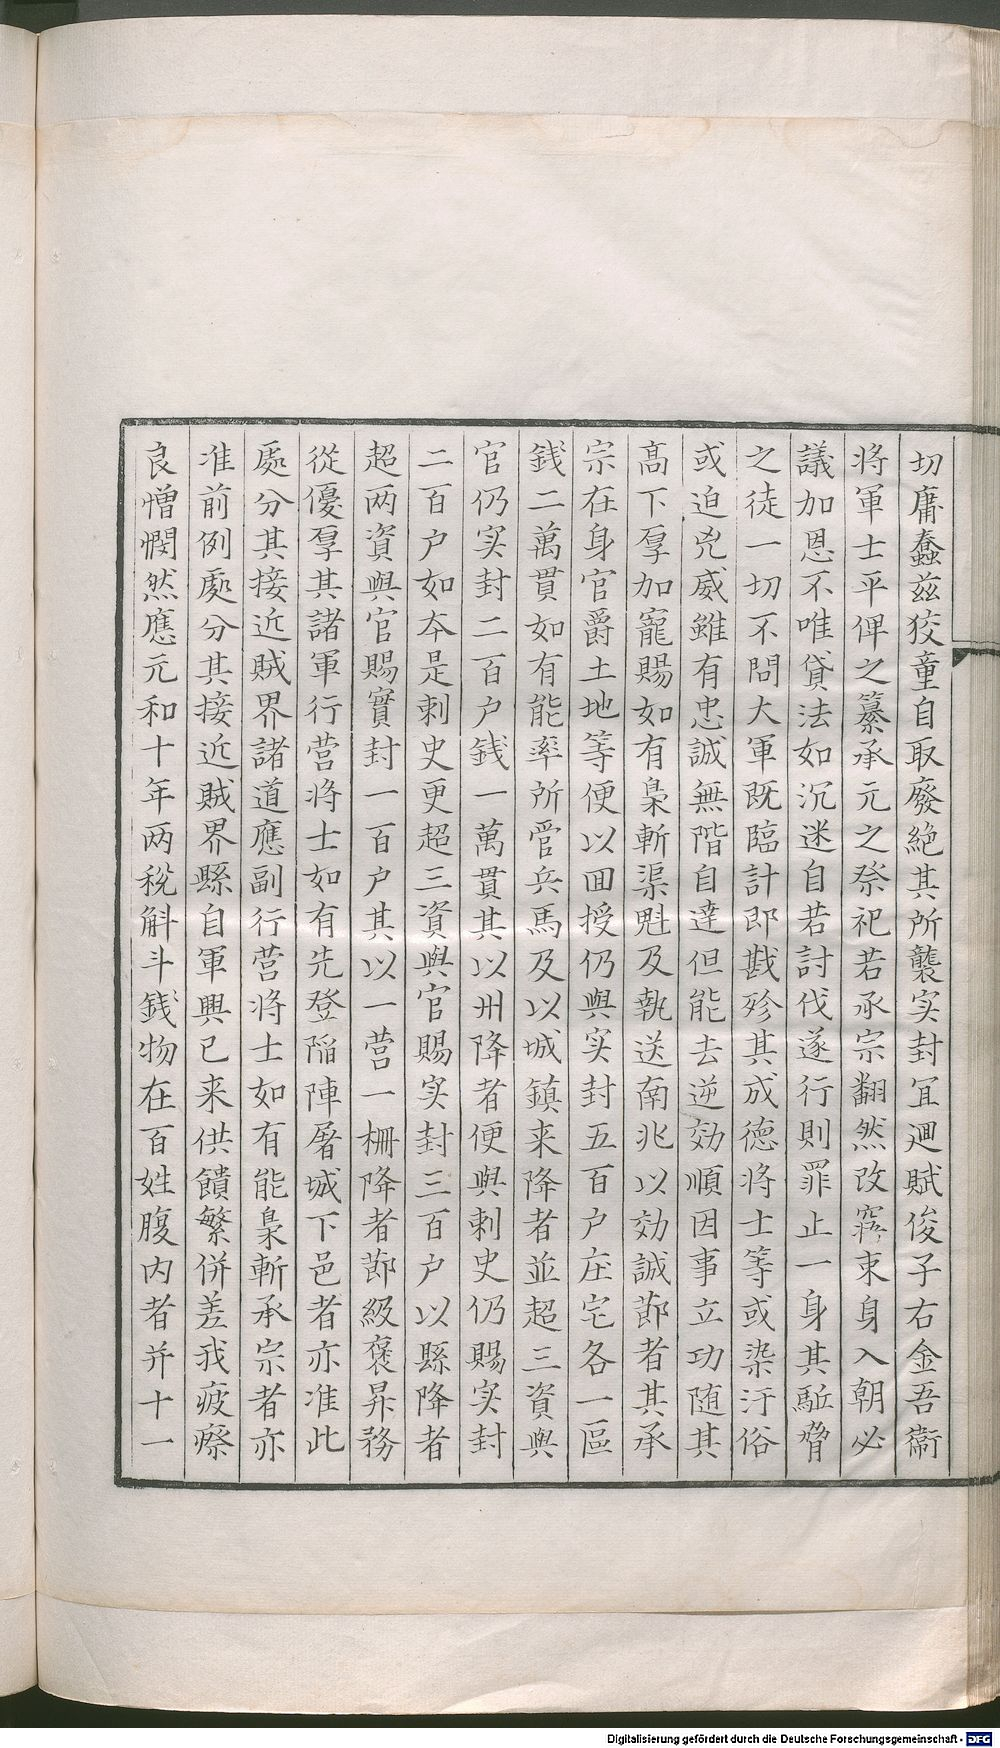 切庸蠢茲狡童自取廢絕其所襲实封冝迴賦俊子右金吾衛
将軍士平俾之纂承元之祭祀若承宗翻然改寤束身入朝必
議加恩不唯貸法如沉迷自若討伐遂行則罪止一身其駈脅
之徒一切不問大軍既臨計即戡殄其成德将士等或染汙俗
或迫兇威雖有忠誠無階自達但能去逆効順因事立功随其
髙下厚加寵賜如有梟斬渠魁及執送南兆以効誠節者其承
宗在身官爵土地等便以囬授仍與实封五百户庄宅各一區
錢二萬貫如有能率所管兵馬及以城鎮来降者並超三資與
官仍实封二百户錢一萬貫其以州降者便與刺史仍賜实封
二百户如夲是刺史更超三資與官賜实封三百户以縣降者
超两資與官賜實封一百户其以一营一栅降者節級褒昇務
從優厚其諸軍行营将士如有先登陷陣屠城下邑者亦准此
處分其接近賊界諸道應副行营将士如有能梟斬承宗者亦
准前例處分其接近賊界縣自軍興已来供饋繁併差我疲瘵
良憎憫然應元和十年两稅斛斗錢物在百姓腹内者并十一
Digitalisierung gefördert durch die Deutsche Forschungsgemeinschaft - DFG